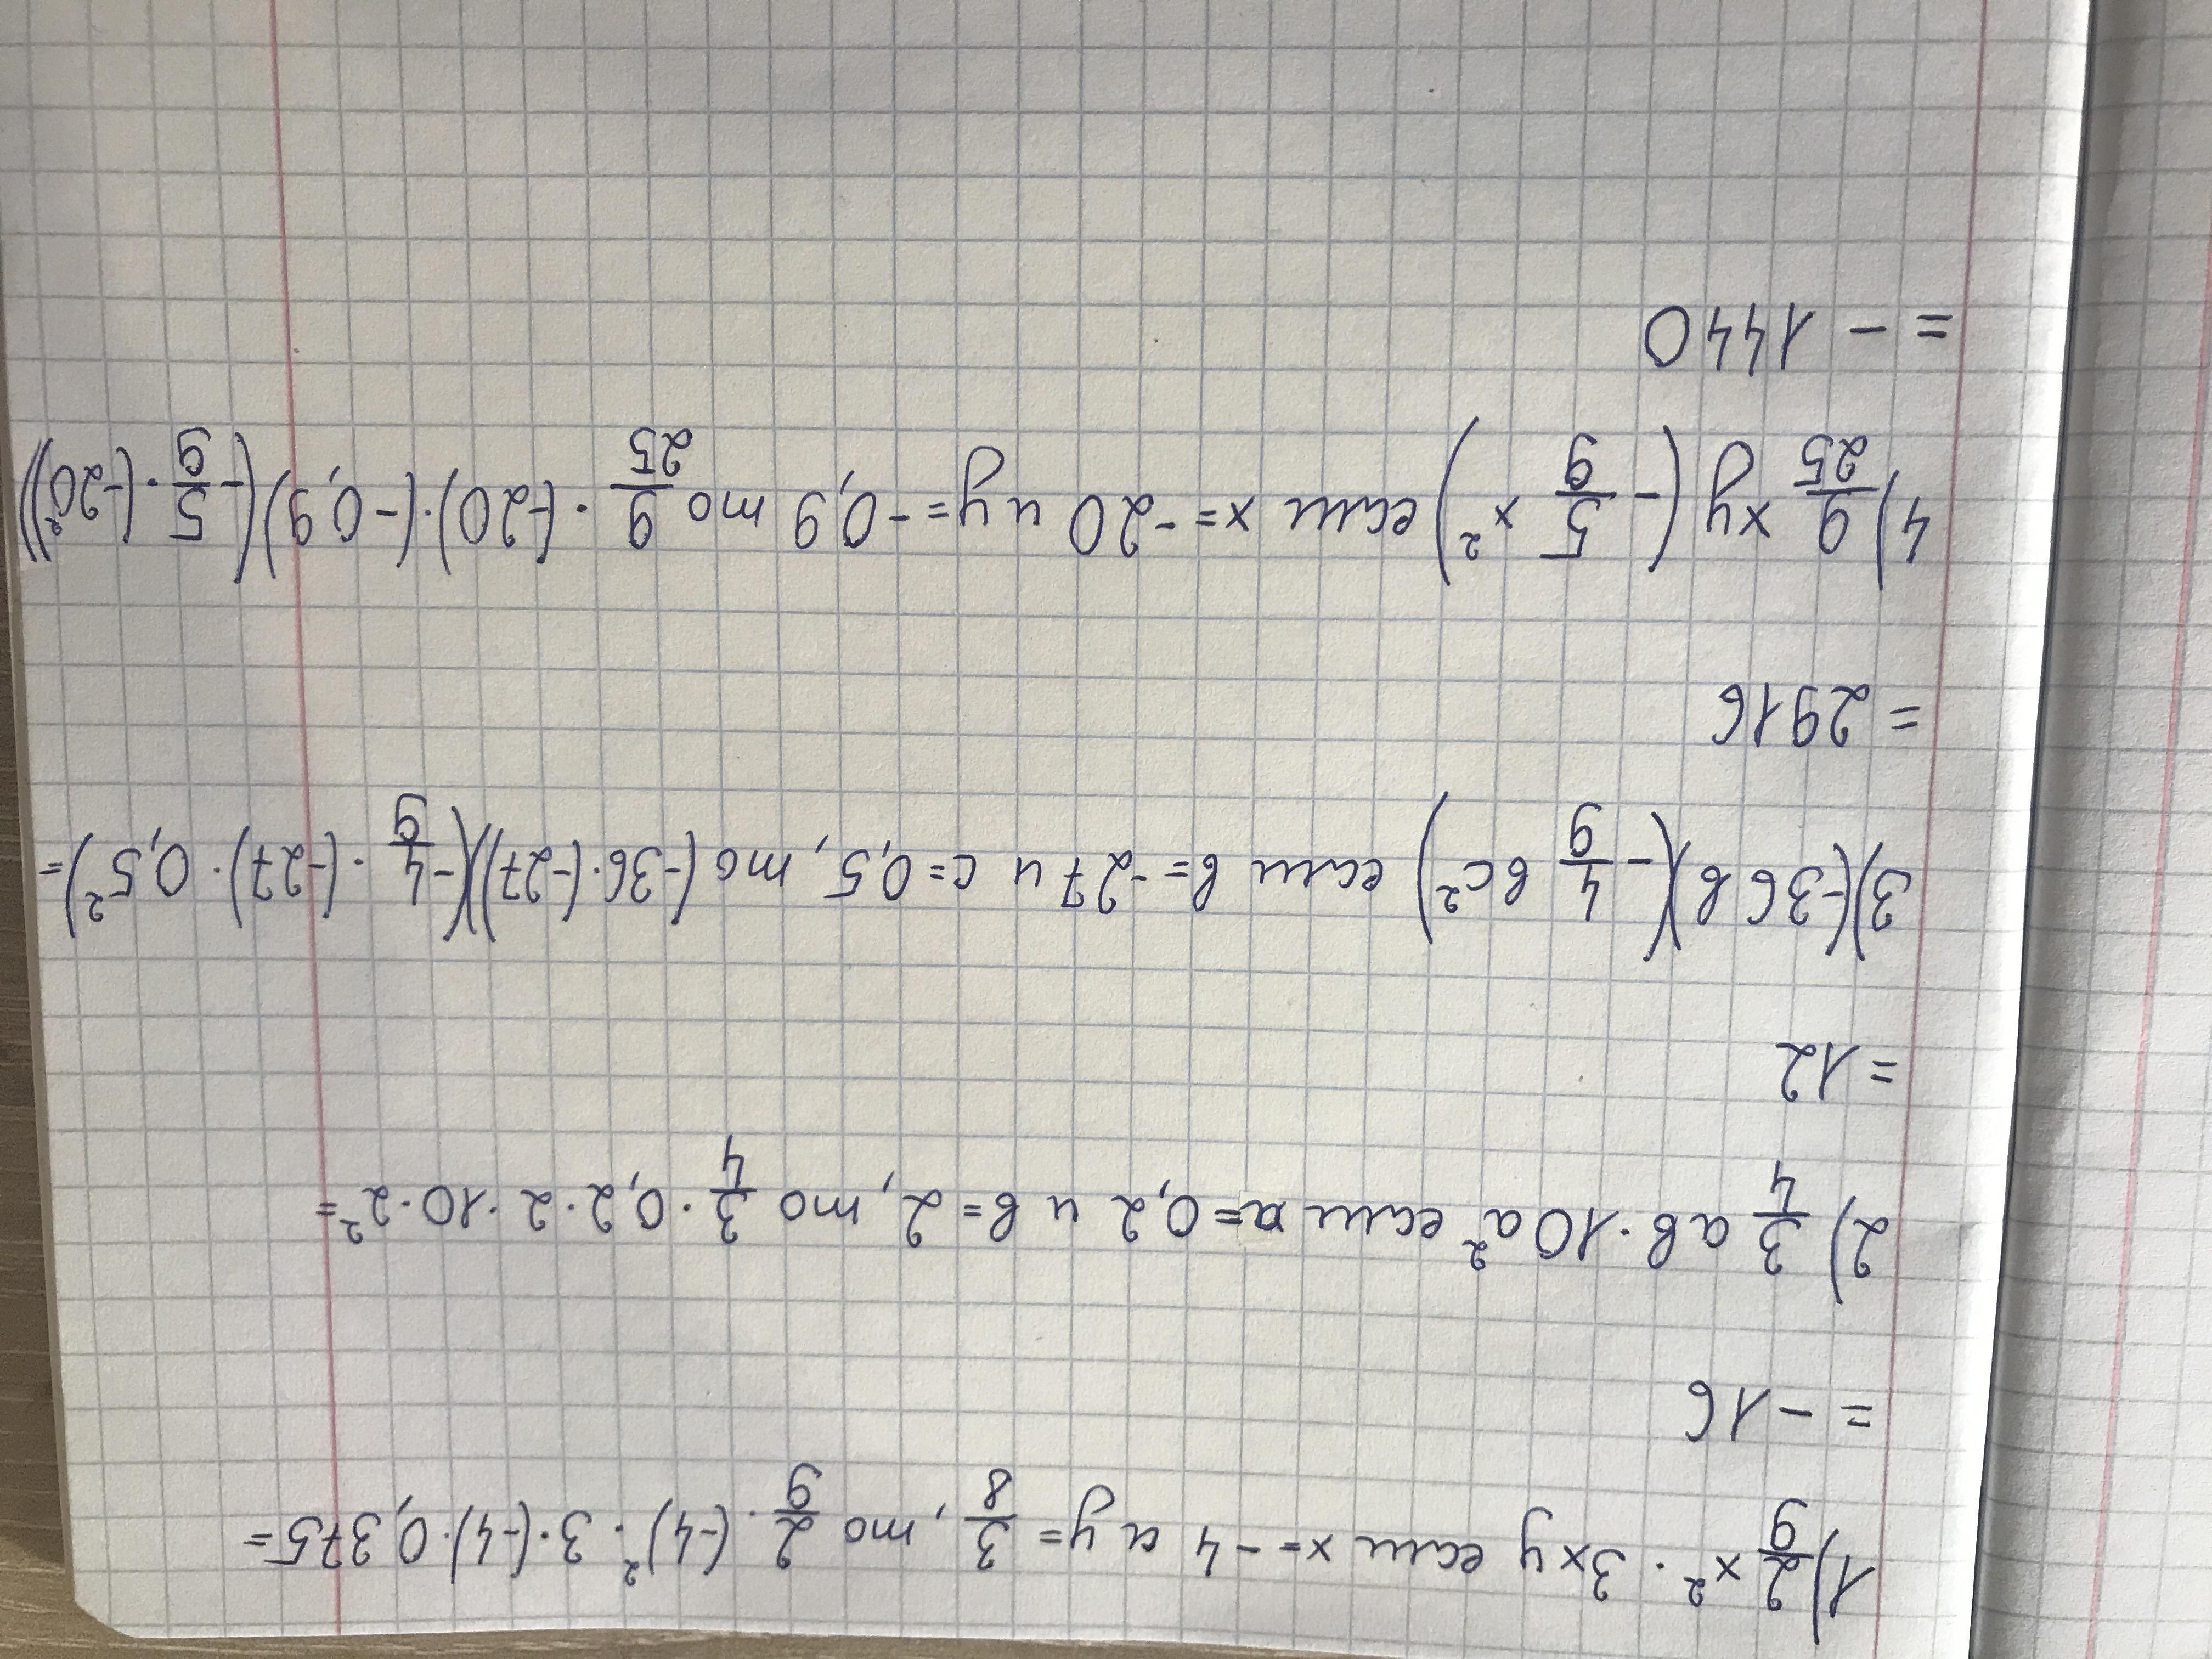 1) 2/9 x² · 3xy если x = -4 и y = 3/8, то 2/9 · (-4)² · 3 · (-4) · 0,375 =
= - 16
2) 3/4 aв · 10a² если a = 0,2 и в = 2, то 3/4 · 0,2 · 2 · 10 · 2² =
= 12
3) (-36в)(-4/9 вc²) если в = -27 и c = 0,5, то (-36 · (-27))(-4/9 · (-27) · 0,5²) =
= 2916
4) 9/25 xy (-5/9 x²) если x = -20 и y = -0,9 то 9/25 · (-20) · (-0,9)(-5/9 · (-20²))
= - 1440